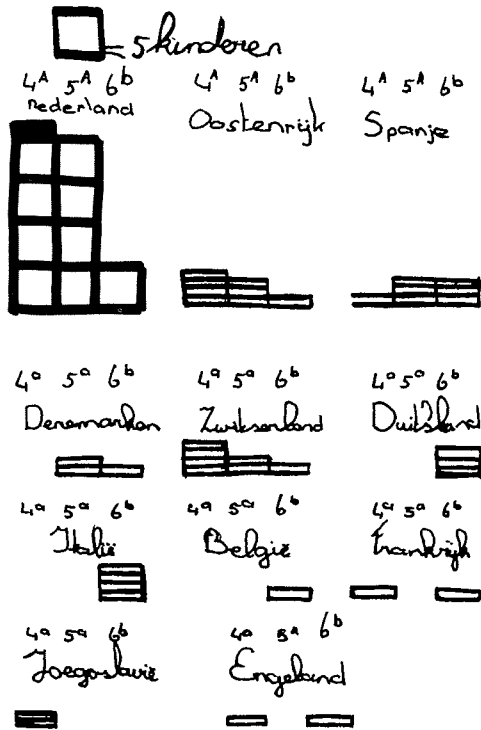 = 5 kinderen
4A 5A 6b
nederland
4A 5A 6b
Oostenrijk
4A 5A 6b
Spanje
4a 5a 6b
Denemarken
4a 5a 6b
Zwitsenland
4a 5a 6b
Duitsland
4a 5a 6b
Italië
4a 5a 6b
België
4a 5a 6b
Frankrijk
4a 5a 6b
Joegoslavië
4a 5A 6b
Engeland